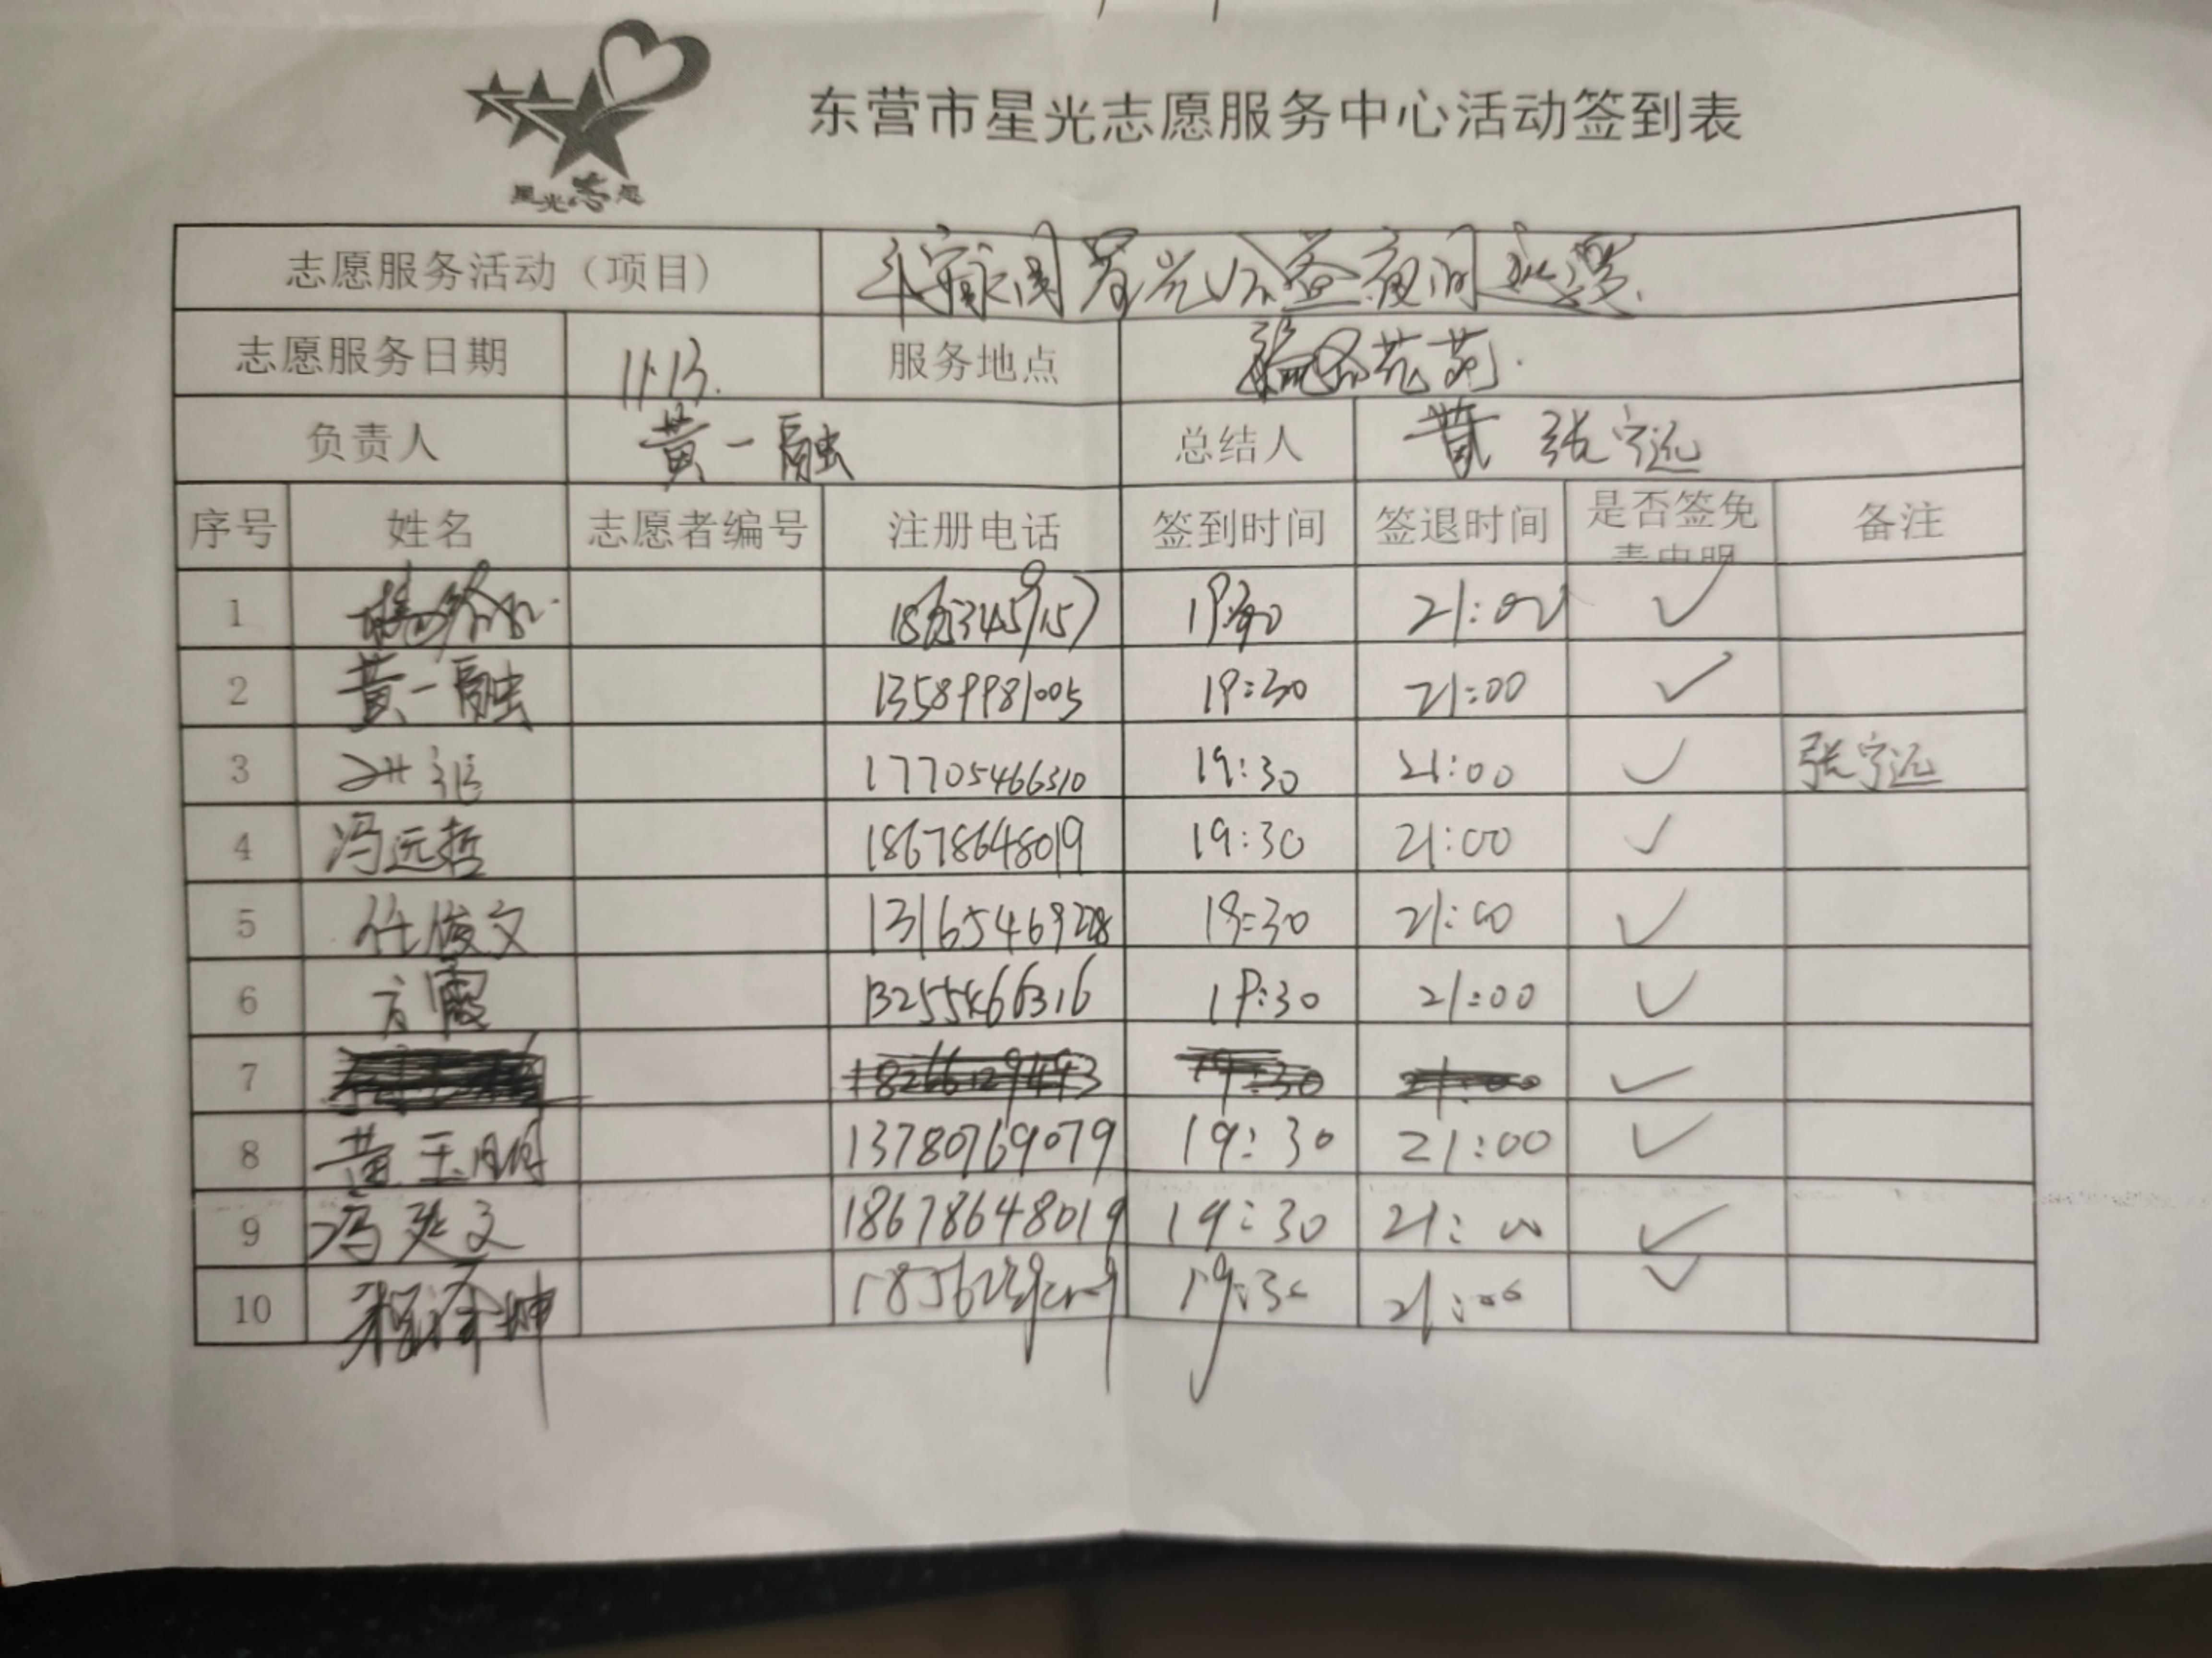 东营市星光志愿服务中心活动签到表
星光志愿
志愿服务活动（项目） 公益夜间巡逻
志愿服务日期 11.13. 服务地点 苑.
负责人 黄一融 总结人 张宁远
序号 姓名 志愿者编号 注册电话 签到时间 签退时间 是否签免 备注
1 21:00 ✓
2 黄一融 13589981005 19:30 21:00 ✓
3 17705466310 19:30 21:00 ✓ 张宁远
4 冯远哲 18678648019 19:30 21:00 ✓
5 任俊文 13165469228 19:30 21:00 ✓
6 方霞 13255466316 19:30 21:00 ✓
7 18266129493 19:30 21:00 ✓
8 黄玉明 13780769079 19:30 21:00 ✓
9 冯延文 18678648019 19:30 21:00 ✓
10 19:30 21:00 ✓